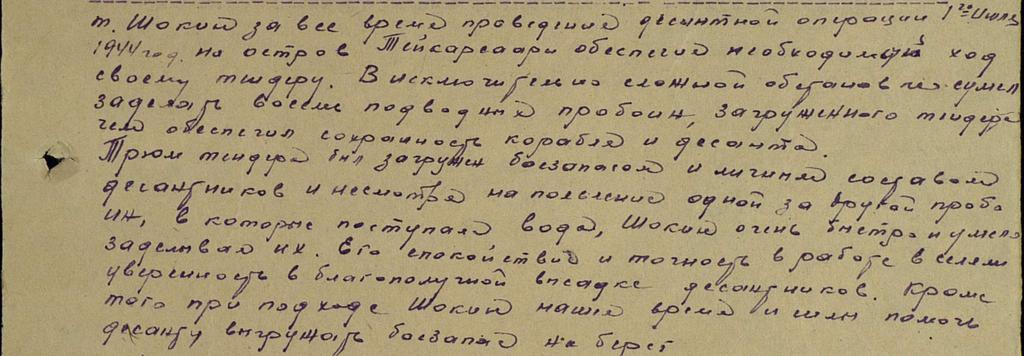 т. Шокин за все время проведения десантной операции 1го Июля
1944 год. на остров Тейкарсаари обеспечил необходимый ход
своему тендеру. В исключительно сложной обстановке сумел
заделать восемь подводных пробоин, загруженного тендера
чем обеспечил сохранность корабля и десанта.
Трюм тендера был загружен боезапасом и личным составом
десантников и несмотря на появление одной за другой пробо
ин, в которые поступала вода, Шокин очень быстро и умело
заделывал их. Его спокойствие и точность в работе вселяли
уверенность в благополучной высадке десантников. Кроме
того при подходе Шокин нашел время и помочь
десанту выгружать боезапас на берег